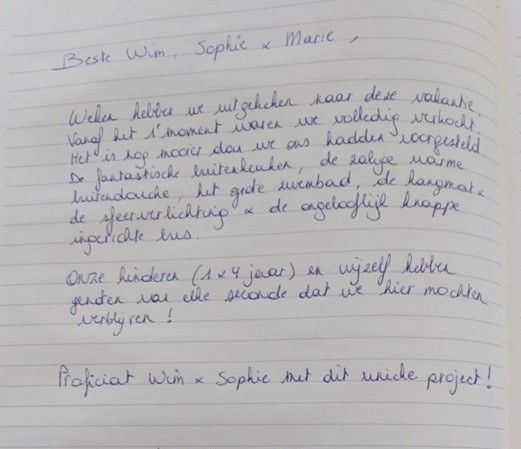 Beste Wim, Sophie & Marie,
Weken hebben we uitgekeken naar deze vakantie.
Vanaf het 1e moment waren we volledig verkocht.
Het is nog mooier dan we ons hadden voorgesteld.
De fantastische buitenkeuken, de zalige warme
buitendouche, het grote zwembad, de hangmat &
de sfeerverlichting & de ongelooflijk knappe
ingerichte bus.
Onze kinderen (1 & 4 jaar) en wijzelf hebben
genoten van elke seconde dat we hier mochten
verblijven!
Proficiat Wim & Sophie met dit unieke project!